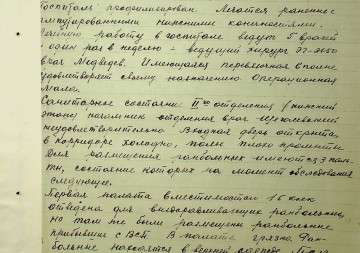 Госпиталь профилирован. Лечатся раненые с
ампутированными нижними конечностями.
Лечебную работу в госпитале ведут 5 врачей
один раз в неделю - ведущий хирург ЭГ-3450
врач Медведев. Имеющаяся перевязочная вполне
удовлетворяет своему назначению. Операционная
мала.
Санитарное состояние II го отделения (нижний
этаж) начальник отделения врач
неудовлетворительно. Входная дверь открыта,
в коридоре холодно, полы плохо промыты.
Для размещения ранбольных имеются 3 пала-
ты, состояние которых на момент обследования
следующее:
Первая палата вместимостью 16 коек
отведена для выздоравливающих ранбольных,
но там же были размещены ранбольные
прибывшие с ВСП. В палате грязно. Ран-
больные находятся в верхней одежде.